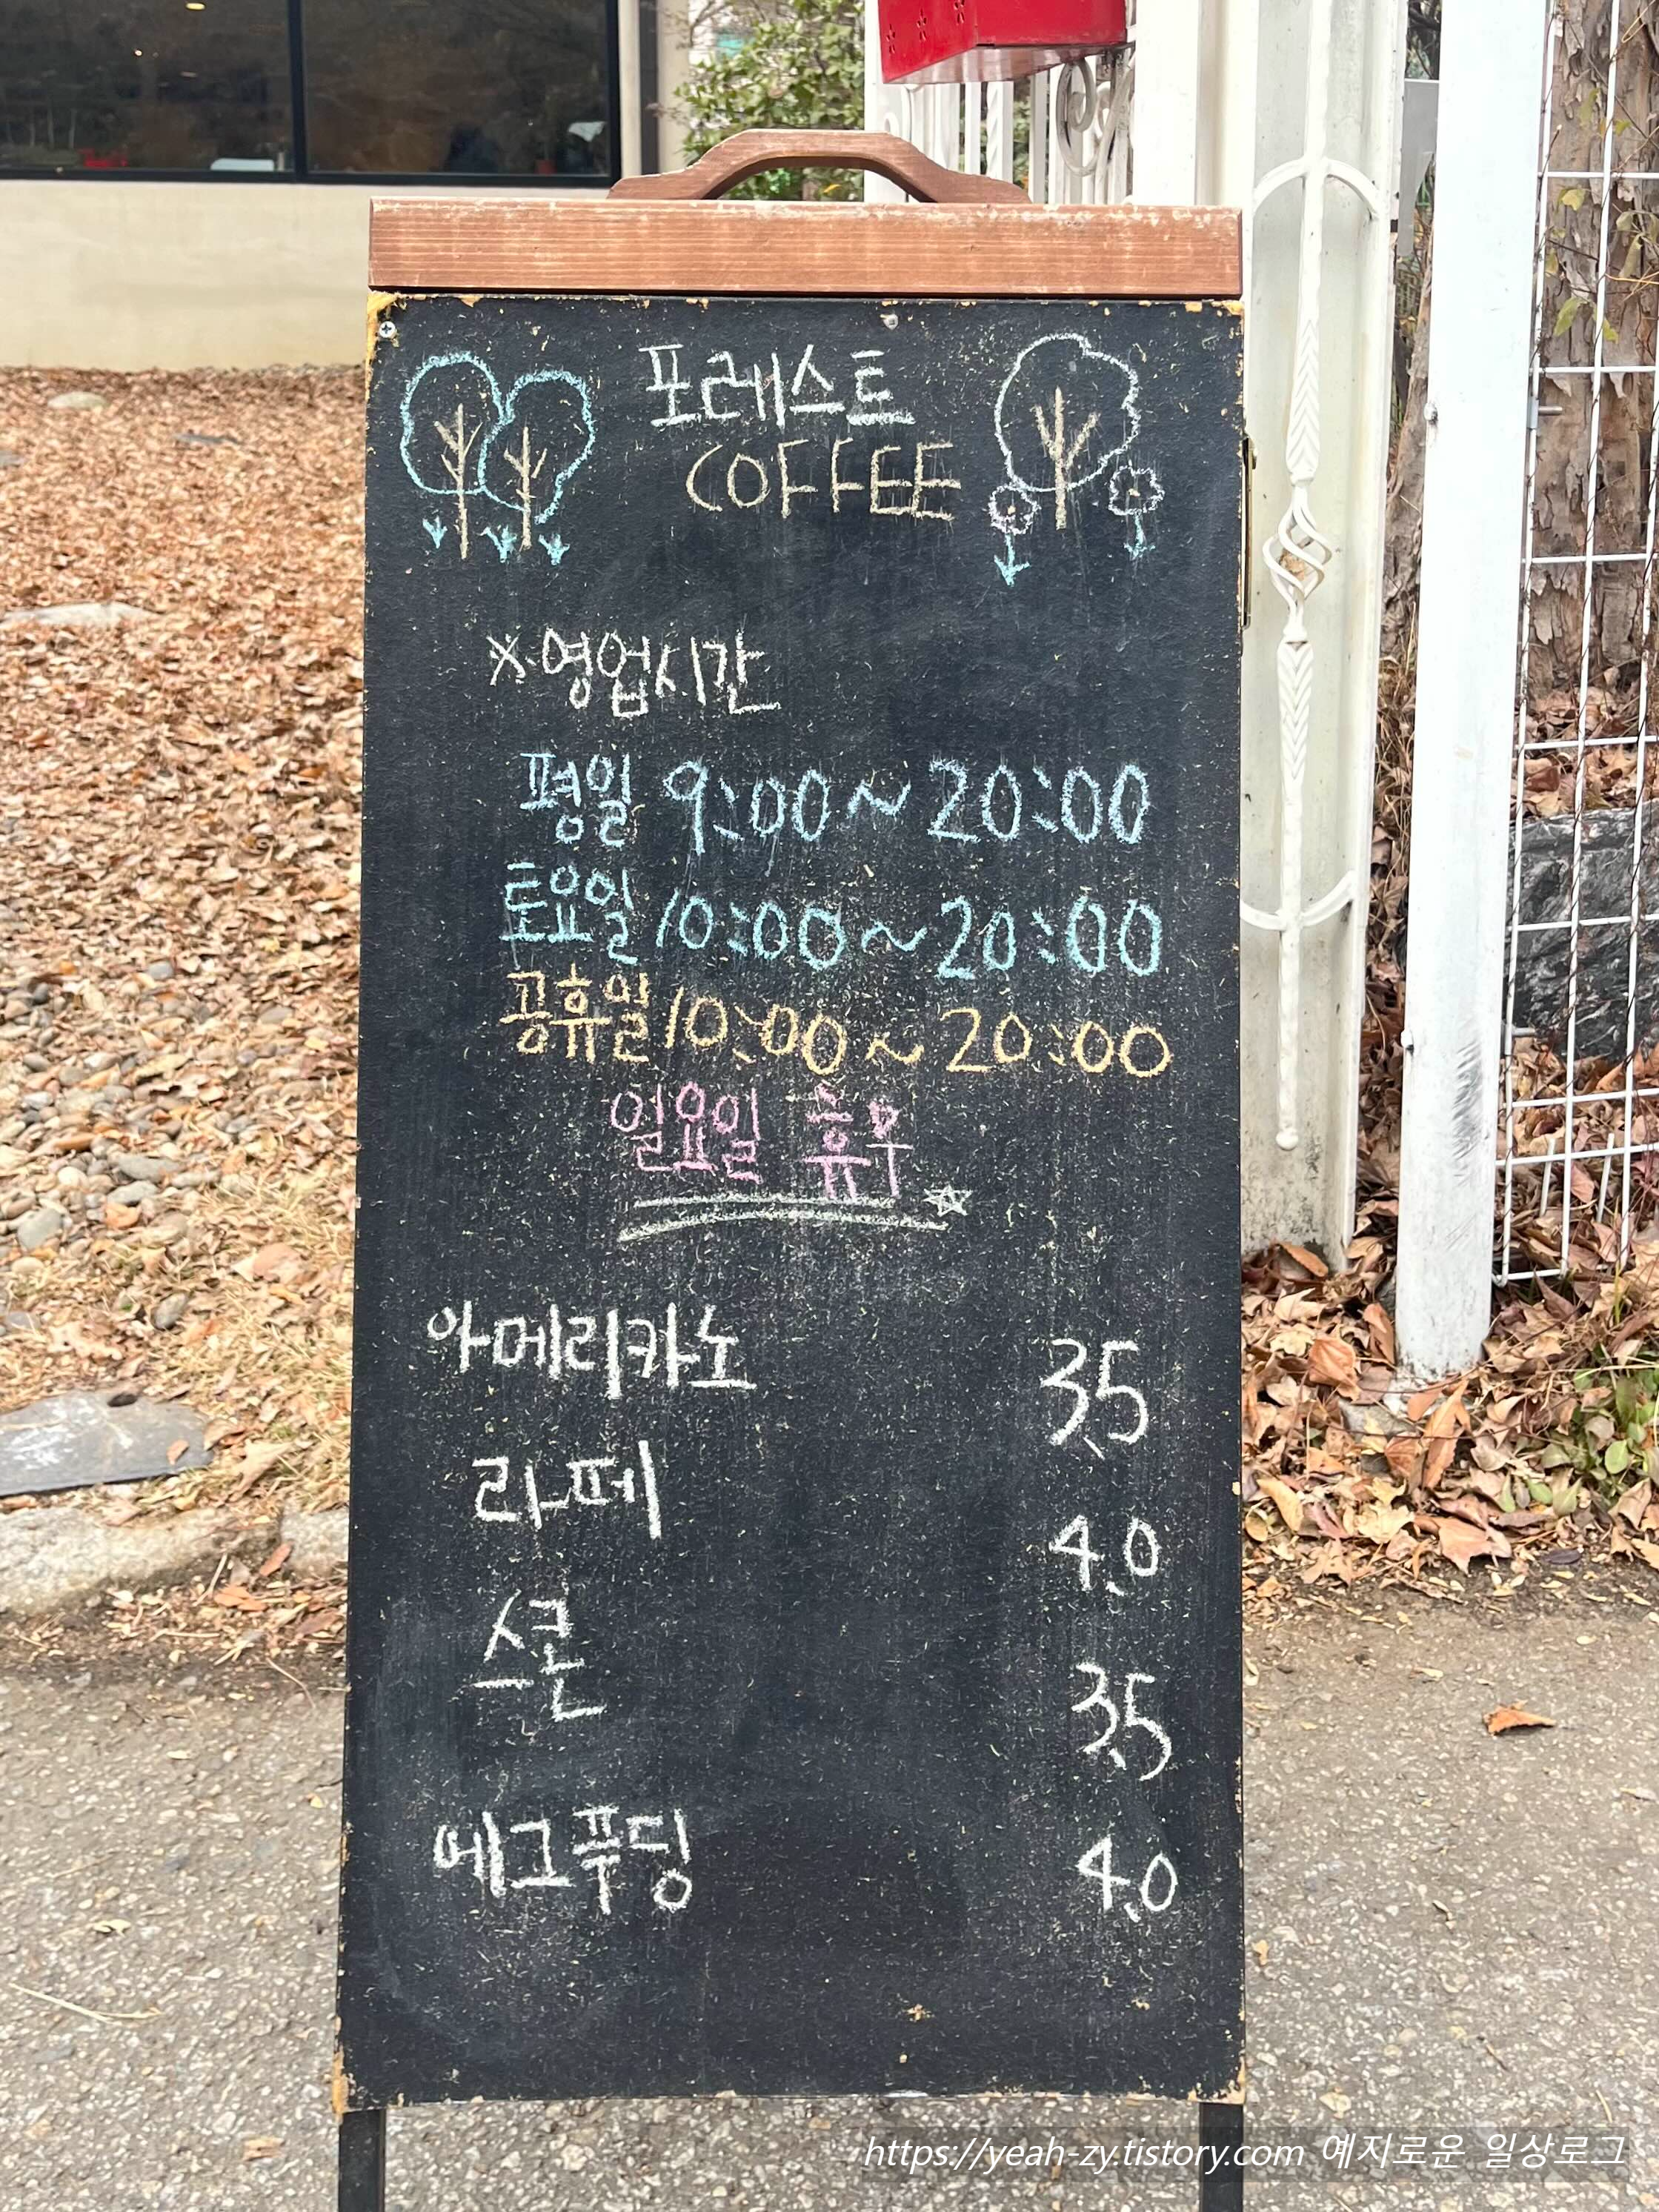 포레스트
COFFEE
※영업시간
평일 9:00~20:00
토요일 10:00~20:00
공휴일 10:00~20:00
일요일 휴무
아메리카노 3.5
라떼 4.0
스콘 3.5
에그푸딩 4.0
https://yeah-zy.tistory.com 예지로운 일상로그